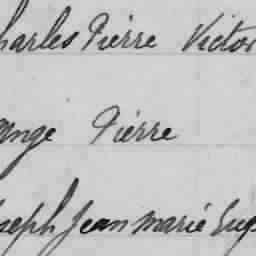 harles Pierre Victor
ange Pierre
oseph Jean Marie Eug